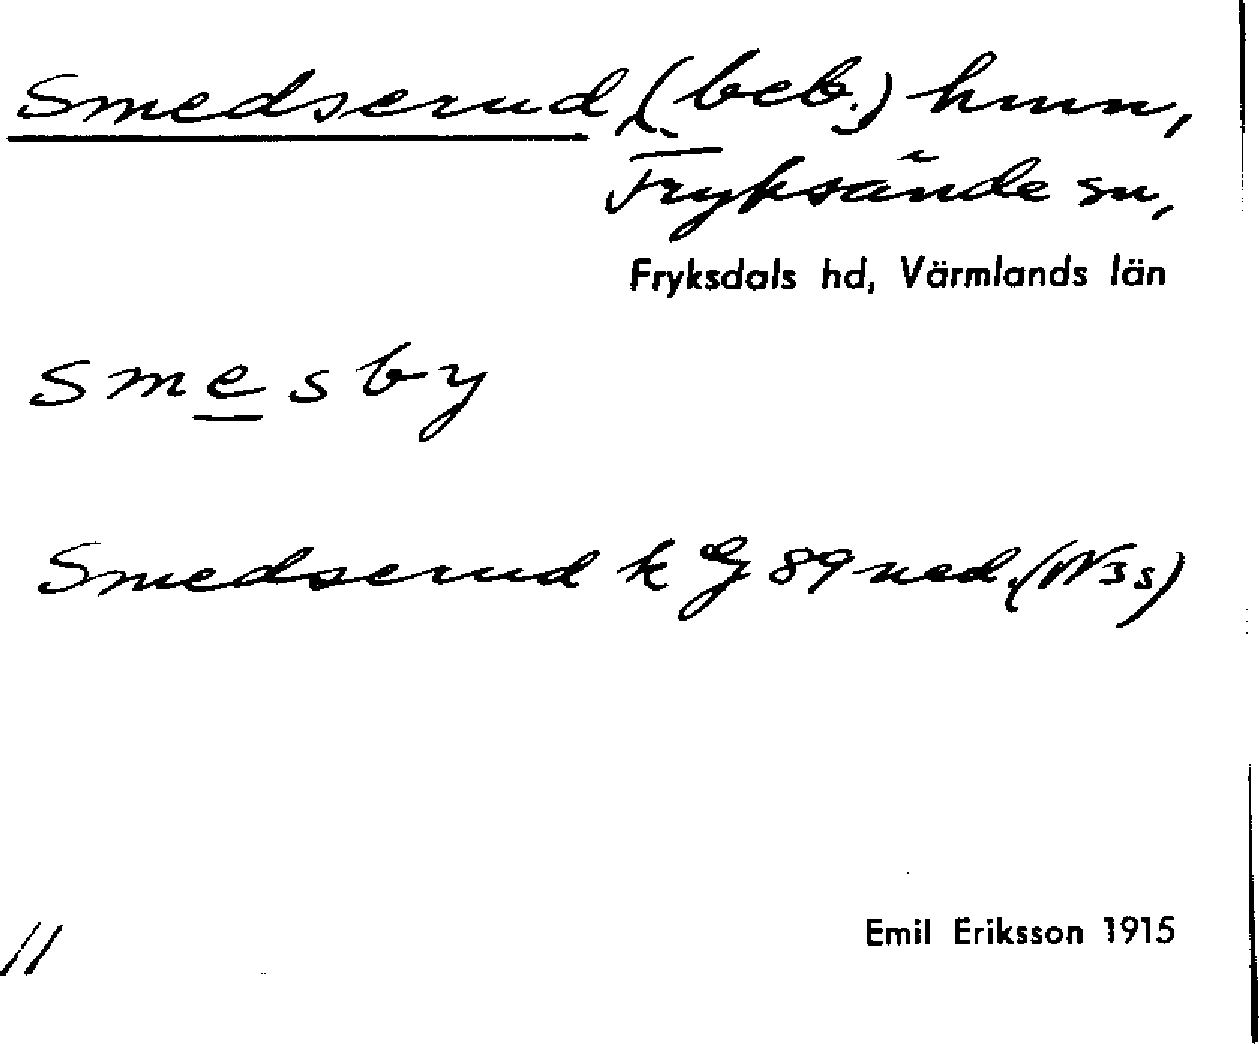 Smedserud, (beb.) hmn,
Fryksände sn,
Fryksdals hd, Värmlands län
smesby
Smedserud k G 89 ned. (N3s)
Emil Eriksson 1915
11